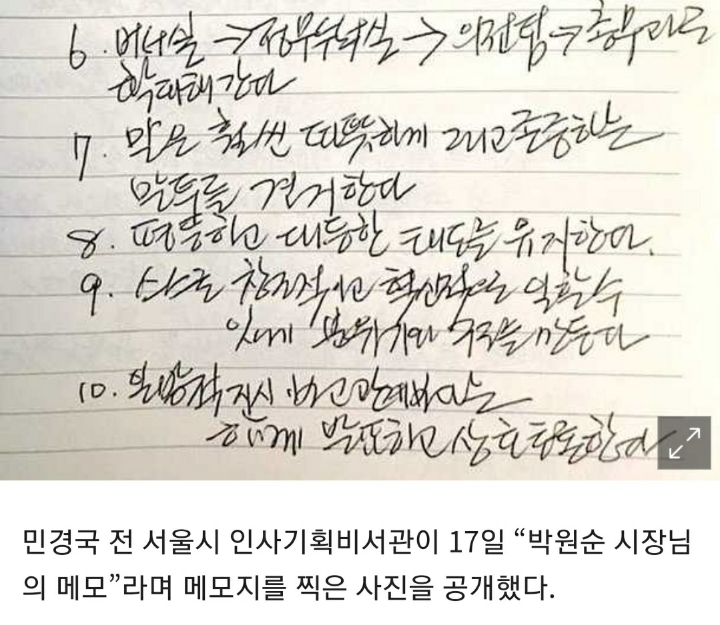 6. 비서실 → 정무부시장실 → 의전팀 → 총무과로
확대해 간다
7. 말은 훨씬 따뜻하게 그리고 존중하는
말투를 견지한다
8. 평등하고 대등한 태도를 유지한다.
9. 스스로 창조적이고 혁신적으로 일할 수
있게 분위기와 구조를 만든다
10. 일방적 지시, 보고 관례보다는
함께 발표하고 상호 토론한다
민경국 전 서울시 인사기획비서관이 17일 “박원순 시장님
의 메모”라며 메모지를 찍은 사진을 공개했다.